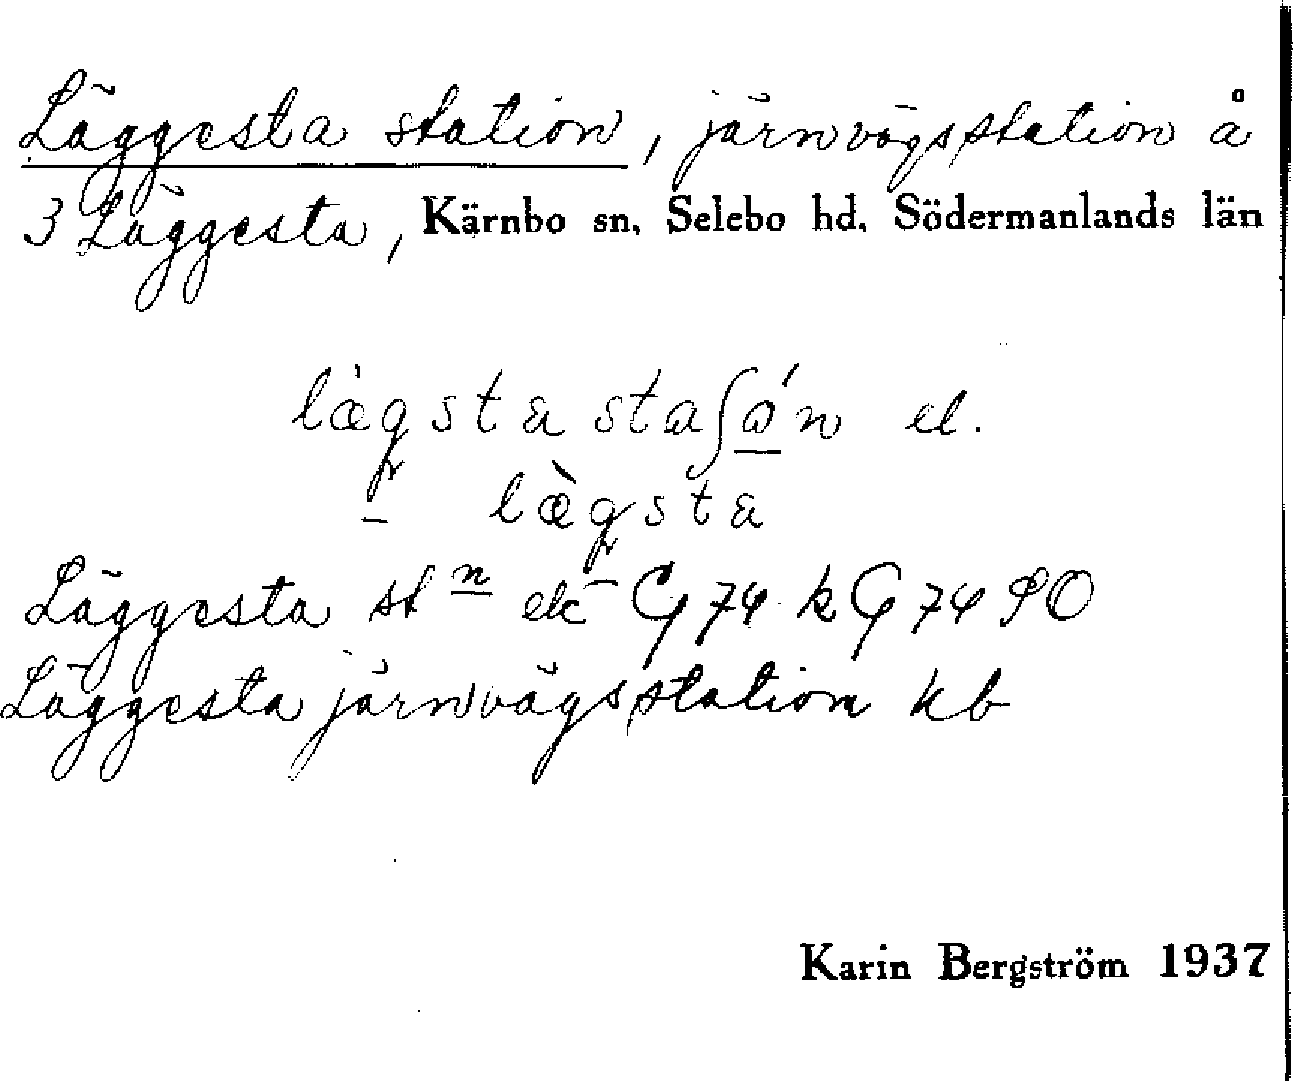 Läggesta station, järnvägsstation å
3 Läggesta, Kärnbo sn, Selebo hd, Södermanlands län
lægsta staʃón el.
lægsta
Läggesta st n ek G 74 k G 74 PO
Läggesta järnvägsstation kb
Karin Bergström 1937